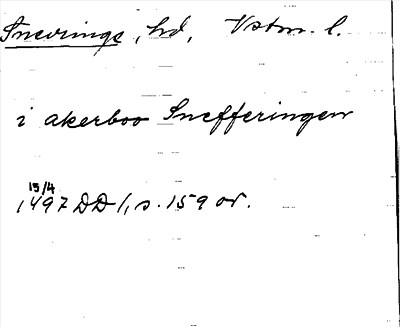 Snevringe, hd, Vstm. l.
i akerboo Sneffveringen
15/4
1497 DD 1, s. 159 or.